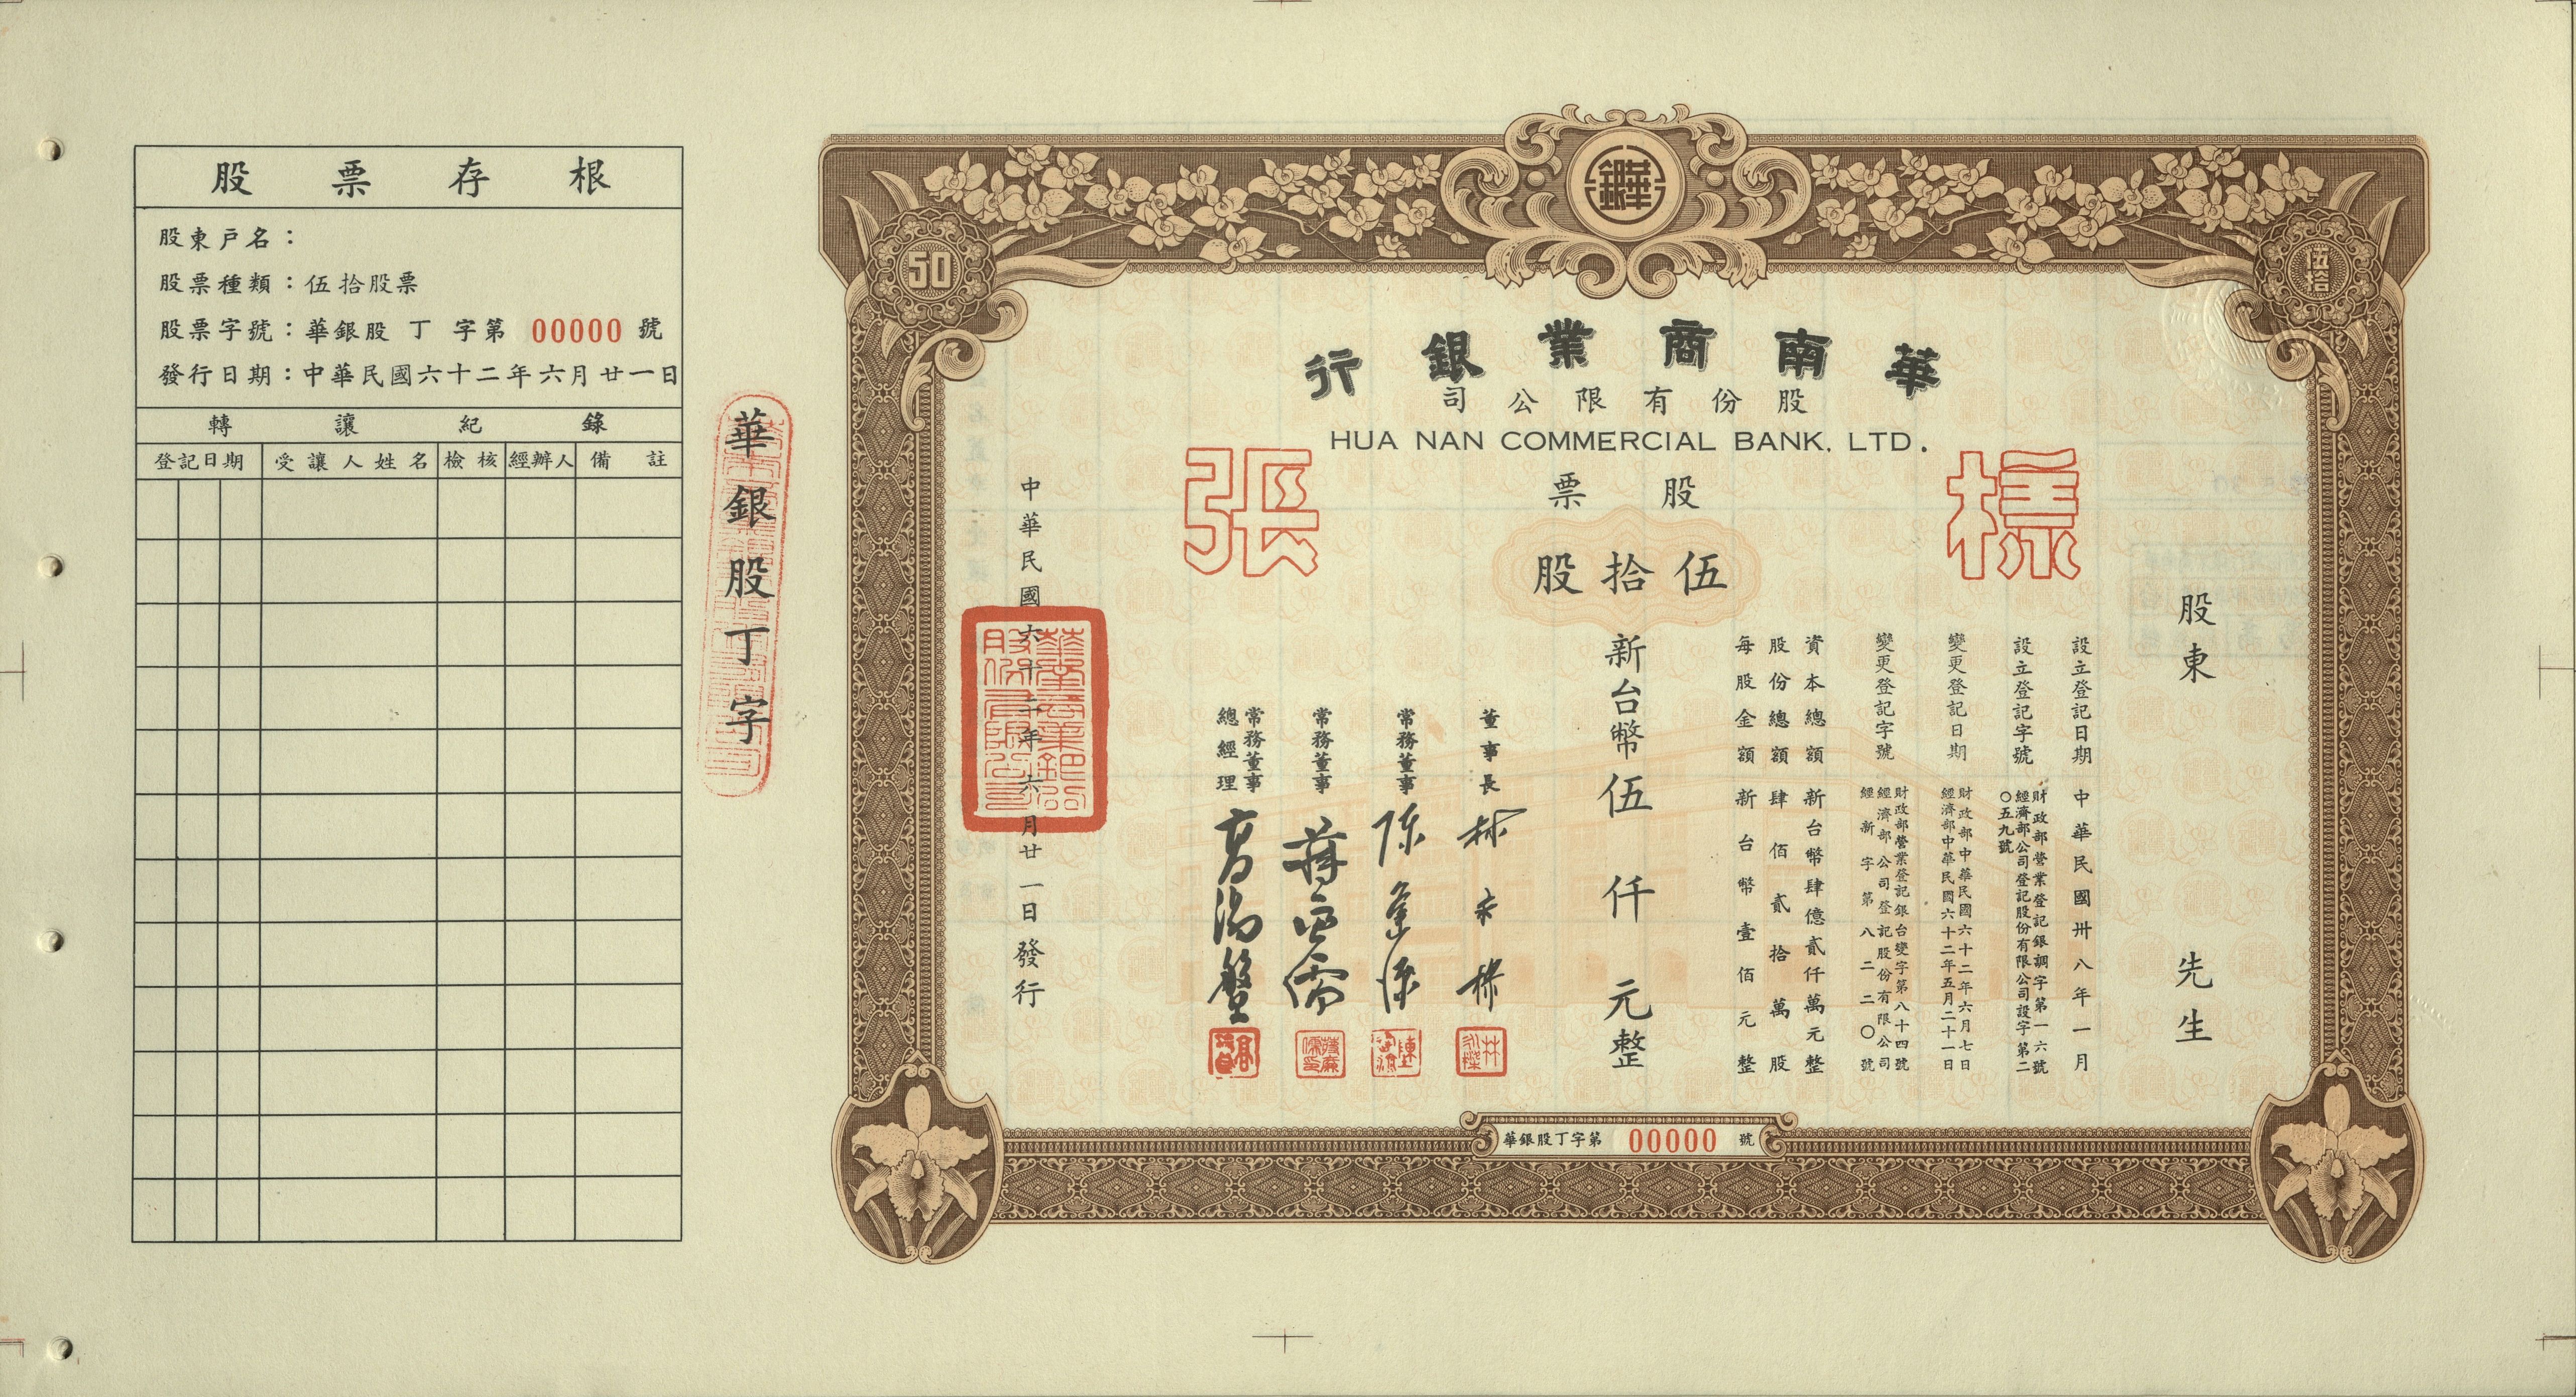 股票存根
股東戶名：
股票種類：伍拾股票
股票字號：華銀股 丁 字第 00000 號
發行日期：中華民國六十二年六月廿一日
轉讓紀錄
登記日期 受讓人姓名 檢核 經辦人 備註
華銀股丁字
50
伍拾
華銀
華南商業銀行
股份有限公司
HUA NAN COMMERCIAL BANK, LTD.
樣張
股票
伍拾股
股東 先生
設立登記日期 中華民國卅八年一月
設立登記字號 財政部營業登記銀調字第一六號
經濟部公司登記股份有限公司設字第二
〇五九號
變更登記日期 財政部中華民國六十二年六月七日
經濟部中華民國六十二年五月二十一日
變更登記字號 財政部營業登記銀台變字第八十四號
經濟部公司登記股份有限公司
經新字第八二二〇號
資本總額新台幣肆億貳仟萬元整
股份總額肆佰貳拾萬股
每股金額新台幣壹佰元整
新台幣伍仟元整
董事長
常務董事
常務董事
常務董事
總經理
中華民國六十二年六月廿一日發行
華南商業銀行股份有限公司
華銀股丁字第 00000 號